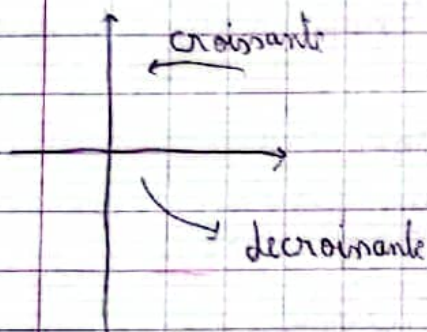 croissante
decroissante